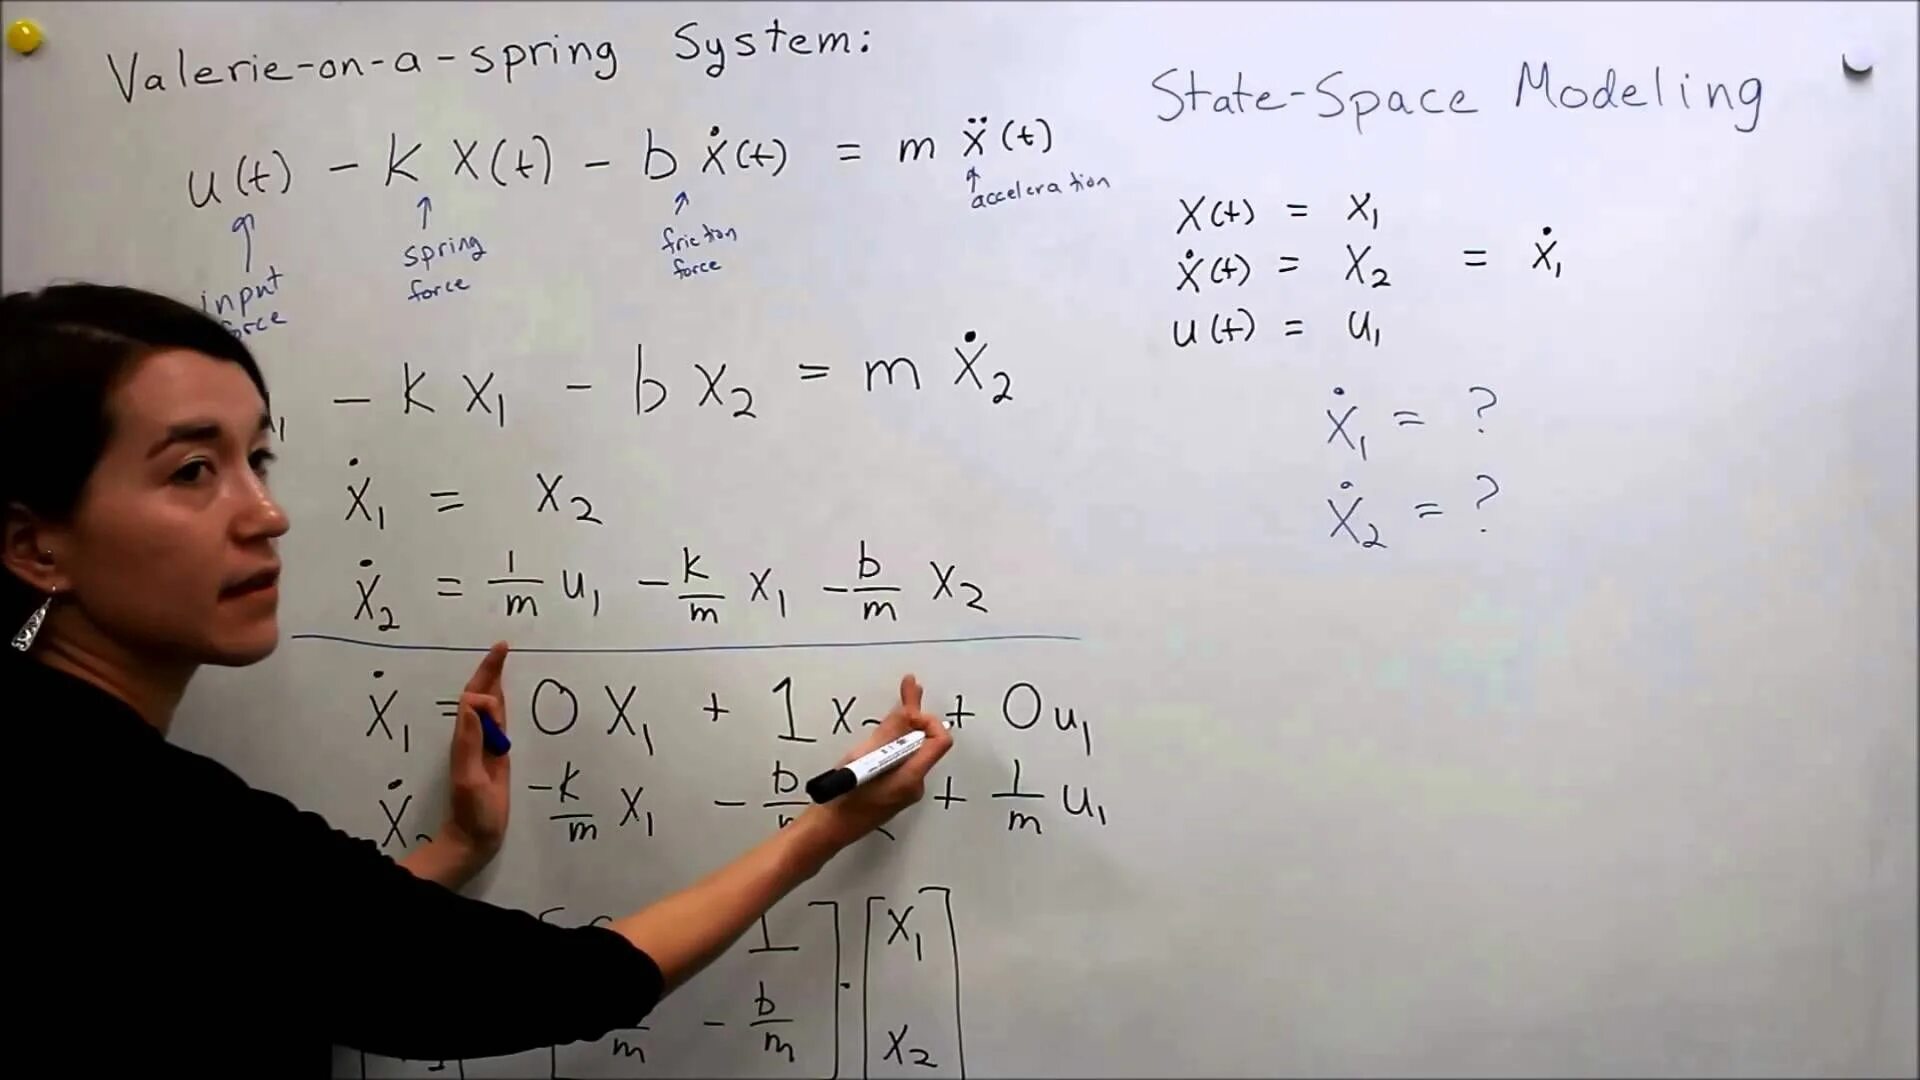 Valerie-on-a-spring System:
u(t) - k x(t) - b ẋ(t) = m ẍ(t)
input force
spring force
friction force
acceleration
- k x₁ - b x₂ = m ẋ₂
ẋ₁ = x₂
ẋ₂ = 1/m u₁ - k/m x₁ - b/m x₂
ẋ₁ = 0 x₁ + 1 x₂ + 0 u₁
-k/m x₁ - b + 1/m u₁
1 ] · [ x₁
m - b/m x₂
State-Space Modeling
x(t) = x₁
ẋ(t) = x₂ = ẋ₁
u(t) = u₁
ẋ₁ = ?
ẋ₂ = ?